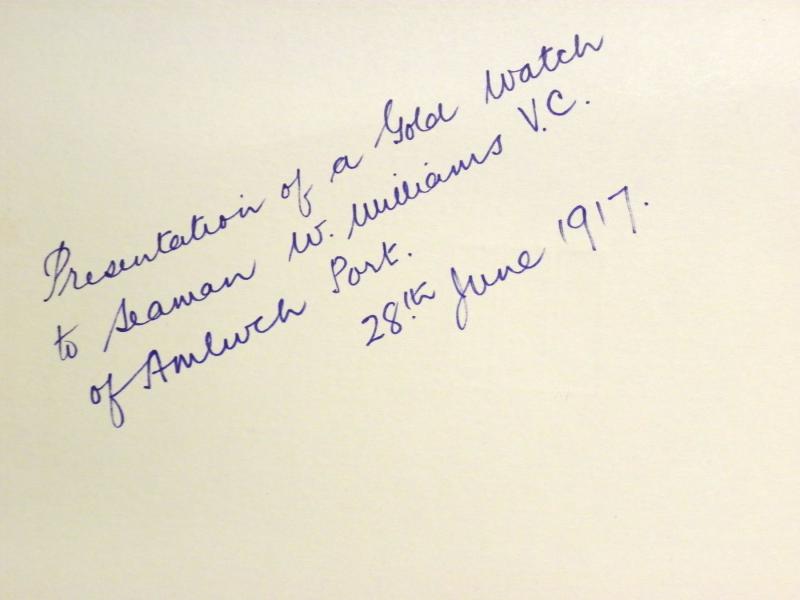 Presentation of a Gold Watch
to Seaman W. Williams V.C.
of Amlwch Port.
28th June 1917.